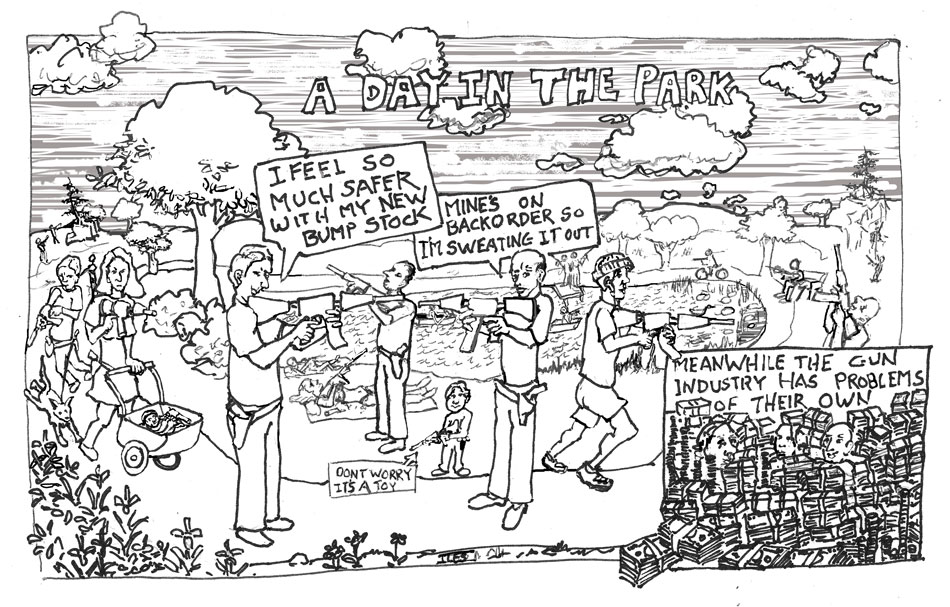 A DAY IN THE PARK
I FEEL SO
MUCH SAFER
WITH MY NEW
BUMP STOCK
MINE'S ON
BACKORDER SO
I'M SWEATING IT OUT
DONT WORRY
ITS A TOY
MEANWHILE THE GUN
INDUSTRY HAS PROBLEMS
OF THEIR OWN